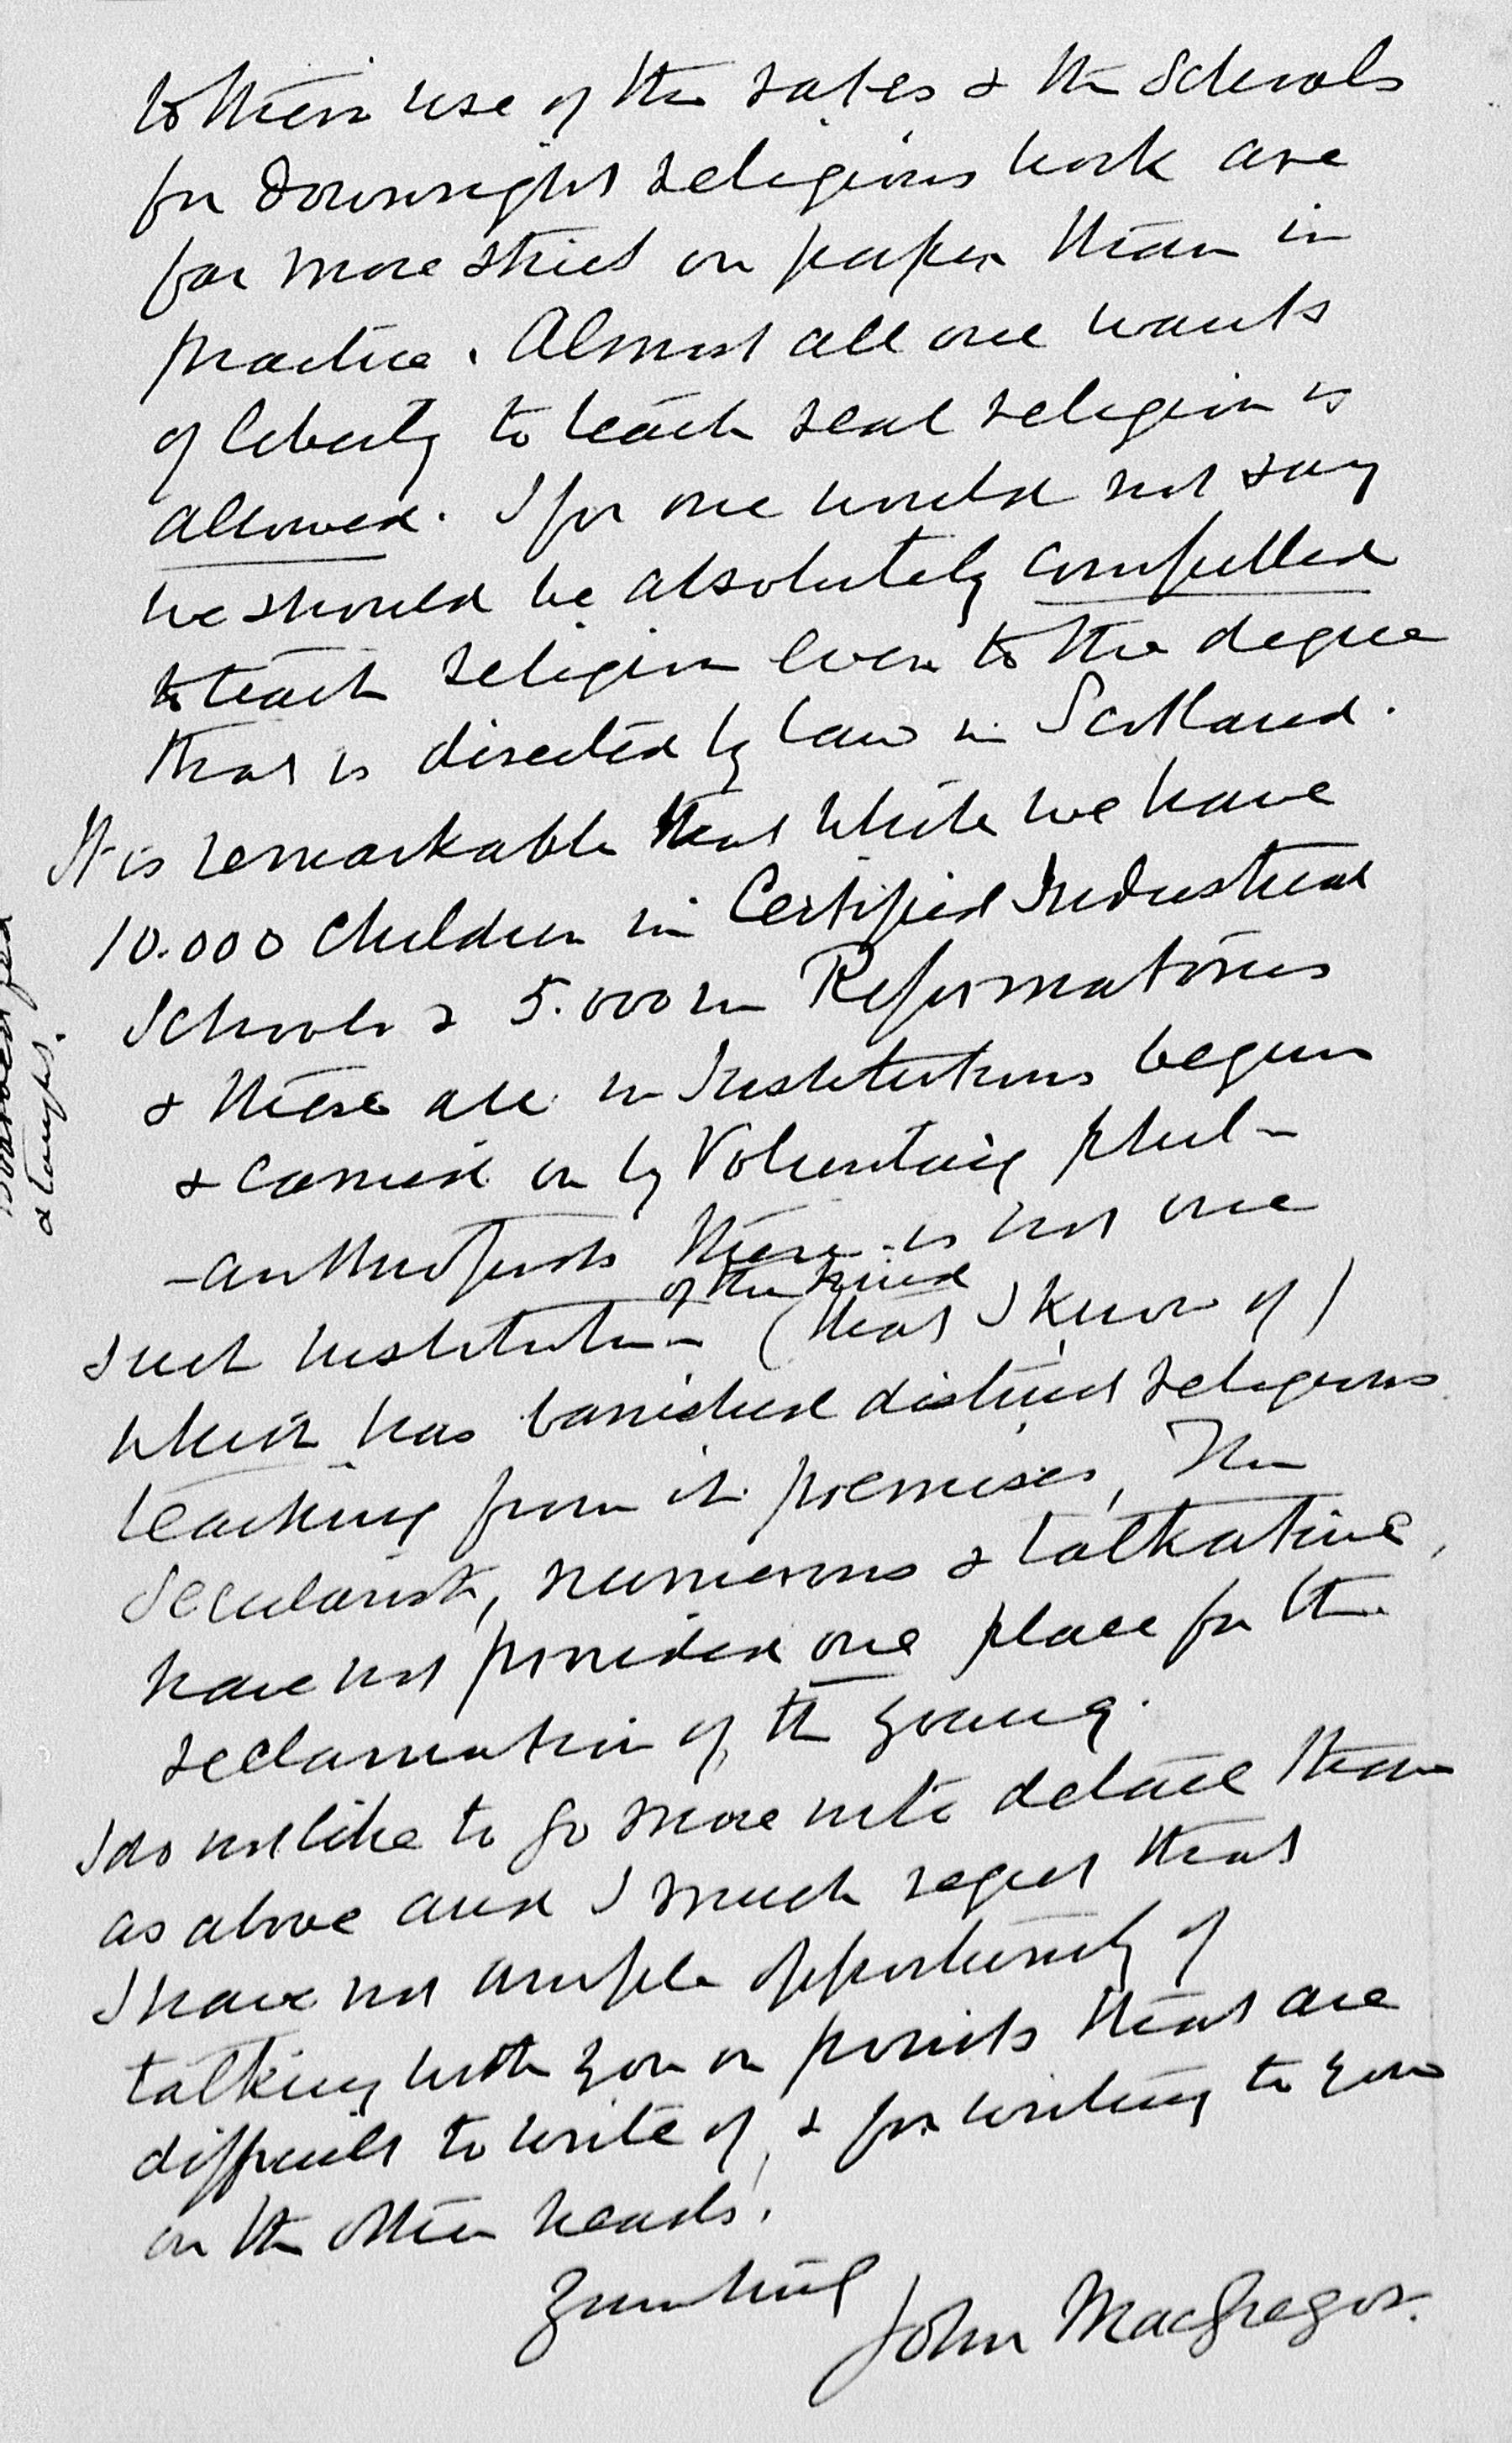 to their use of the rates & the Schools
for downright religious work are
far more strict on paper than in
practice. Almost all one wants
of liberty to teach real religion is
allowed. I for one would not say
we should be absolutely compelled
to teach religion even to the degree
that is directed by law in Scotland.
It is remarkable that while we have
10.000 children in Certified Industrial
Schools & 5.000 in Reformatories
& these are in Institutions begun
& carried on by Voluntary phil-
-anthropists there is not one
of the kind
such institution (that I know of)
which has banished distinct religious
teaching from its premises, The
Secularists, numerous & talkative,
have not provided one place for the
reclamation of the young.
I do not like to go more into detail than
as above and I much regret that
I have not ample opportunity of
talking with you on points that are
difficult to write of, & for writing to you
on the other heads.
Yours truly
John MacGregor.
boarded fed
& taught.